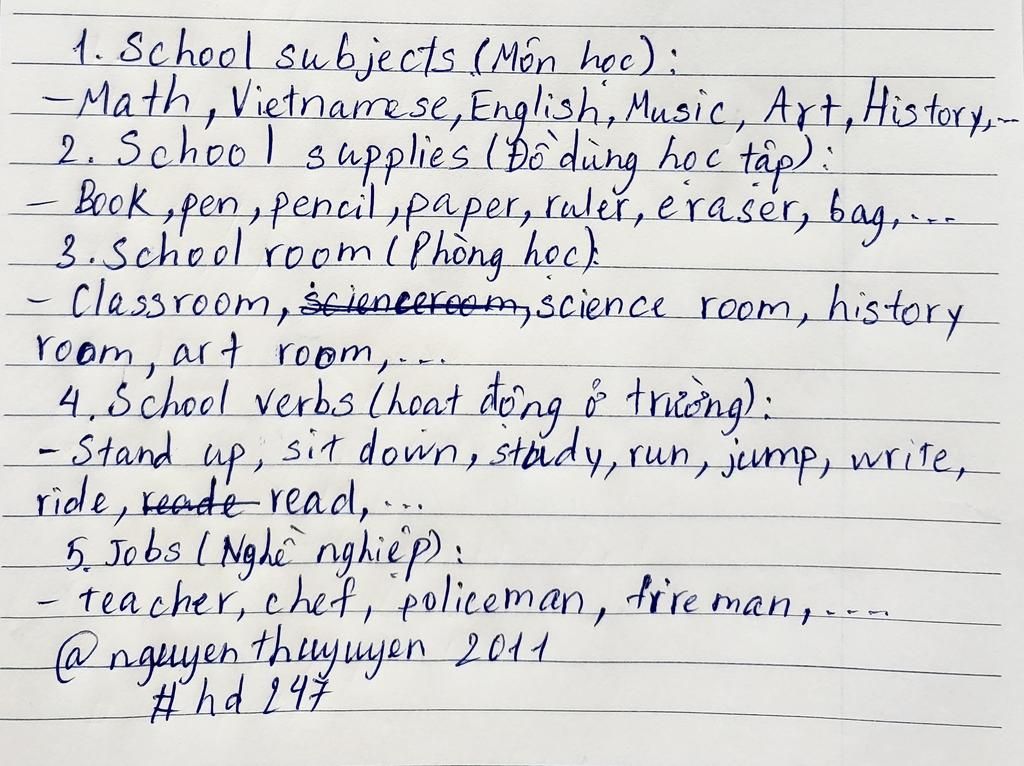 1. School subjects (Môn học):
- Math, Vietnamese, English, Music, Art, History,...
2. School supplies (Đồ dùng học tập):
- Book, pen, pencil, paper, ruler, eraser, bag,...
3. School room (Phòng học):
- Classroom, scienceroom, science room, history
room, art room,...
4. School verbs (hoạt động ở trường):
- Stand up, sit down, study, run, jump, write,
ride, reade read,...
5. Jobs (Nghề nghiệp):
- teacher, chef, policeman, fireman,....
@nguyenthuyuyen 2011
#hd 247